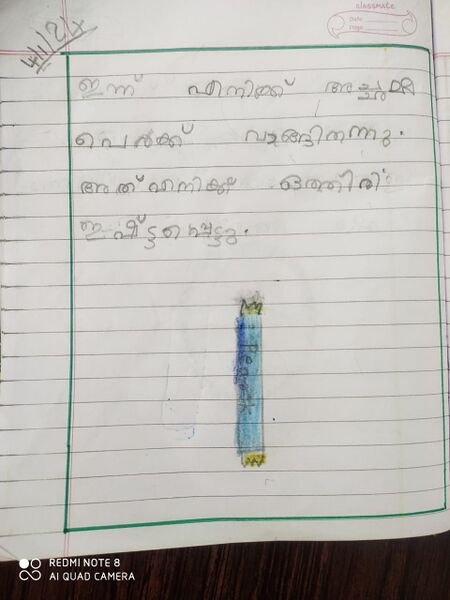 classmate
Date
Page
4/1/24
ഇന്ന് എനിക്ക് അച്ഛൻ
പെർക്ക് വാങ്ങിതന്നു.
അത് എനിക്ക് ഒത്തിരി
ഇഷ്ട്ടപ്പെട്ടു.
REDMI NOTE 8
AI QUAD CAMERA